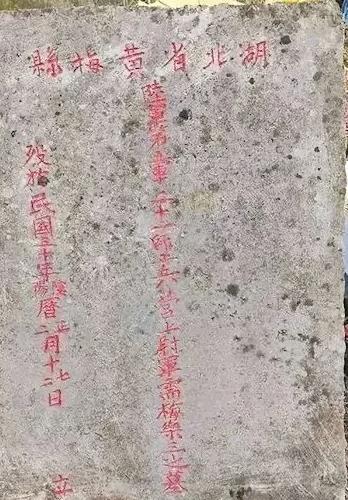 湖北省黃梅縣
陸軍第軍十一師營上尉軍需梅樂三之墓
歿於民國三十年陰陽曆正二月十七二日
立